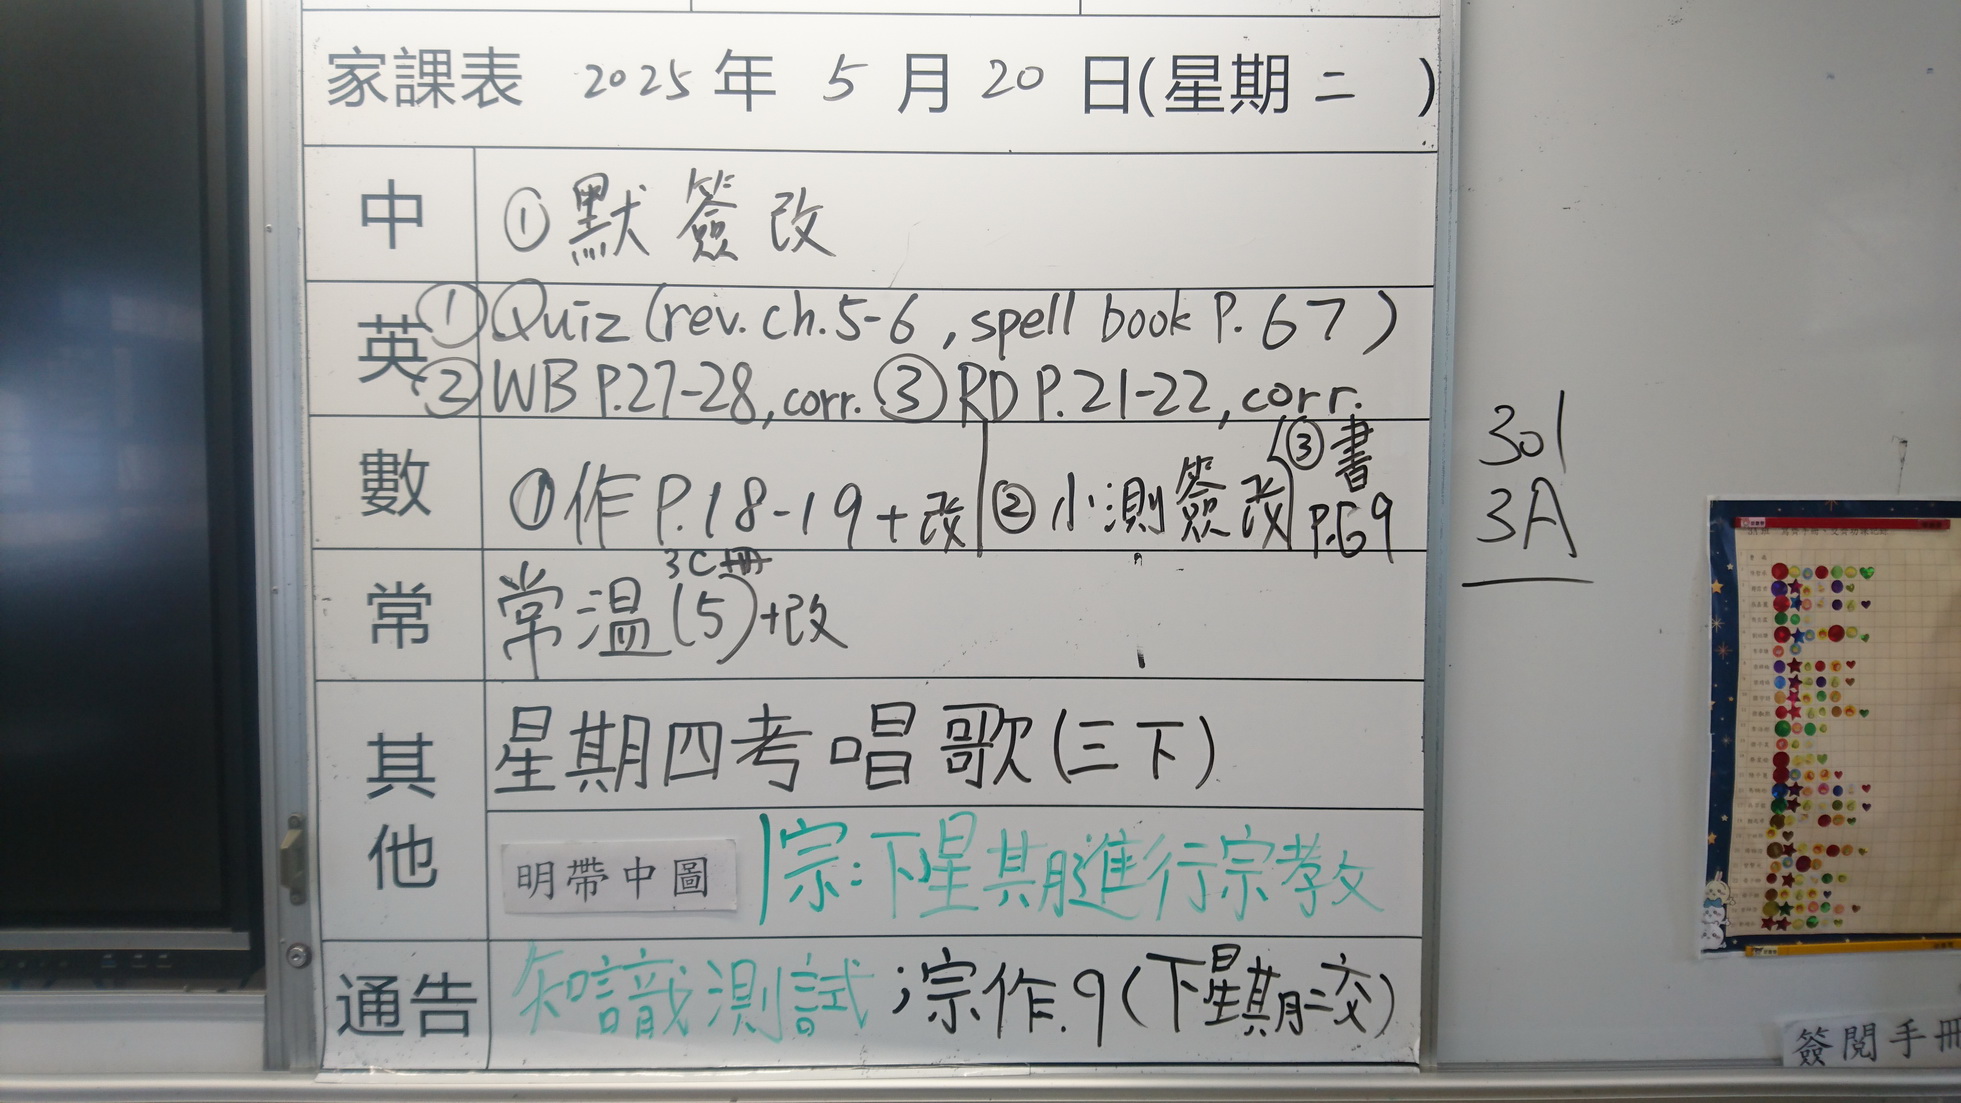 家課表 2025 年 5 月 20 日(星期二 )
中 ①默 簽 改
英 ①Quiz (rev. ch.5-6, spell book P. 67)
②WB P.27-28, corr. ③RD P.21-22, corr.
數 ①作 P.18-19+改 ②小測簽改 ③書 P.69
3C冊
常 常温(5)+改
其他 星期四考唱歌(三下)
明帶中圖 宗:下星期進行宗教
通告 知識測試;宗作.9(下星期二交)
301
3A
簽閱手冊